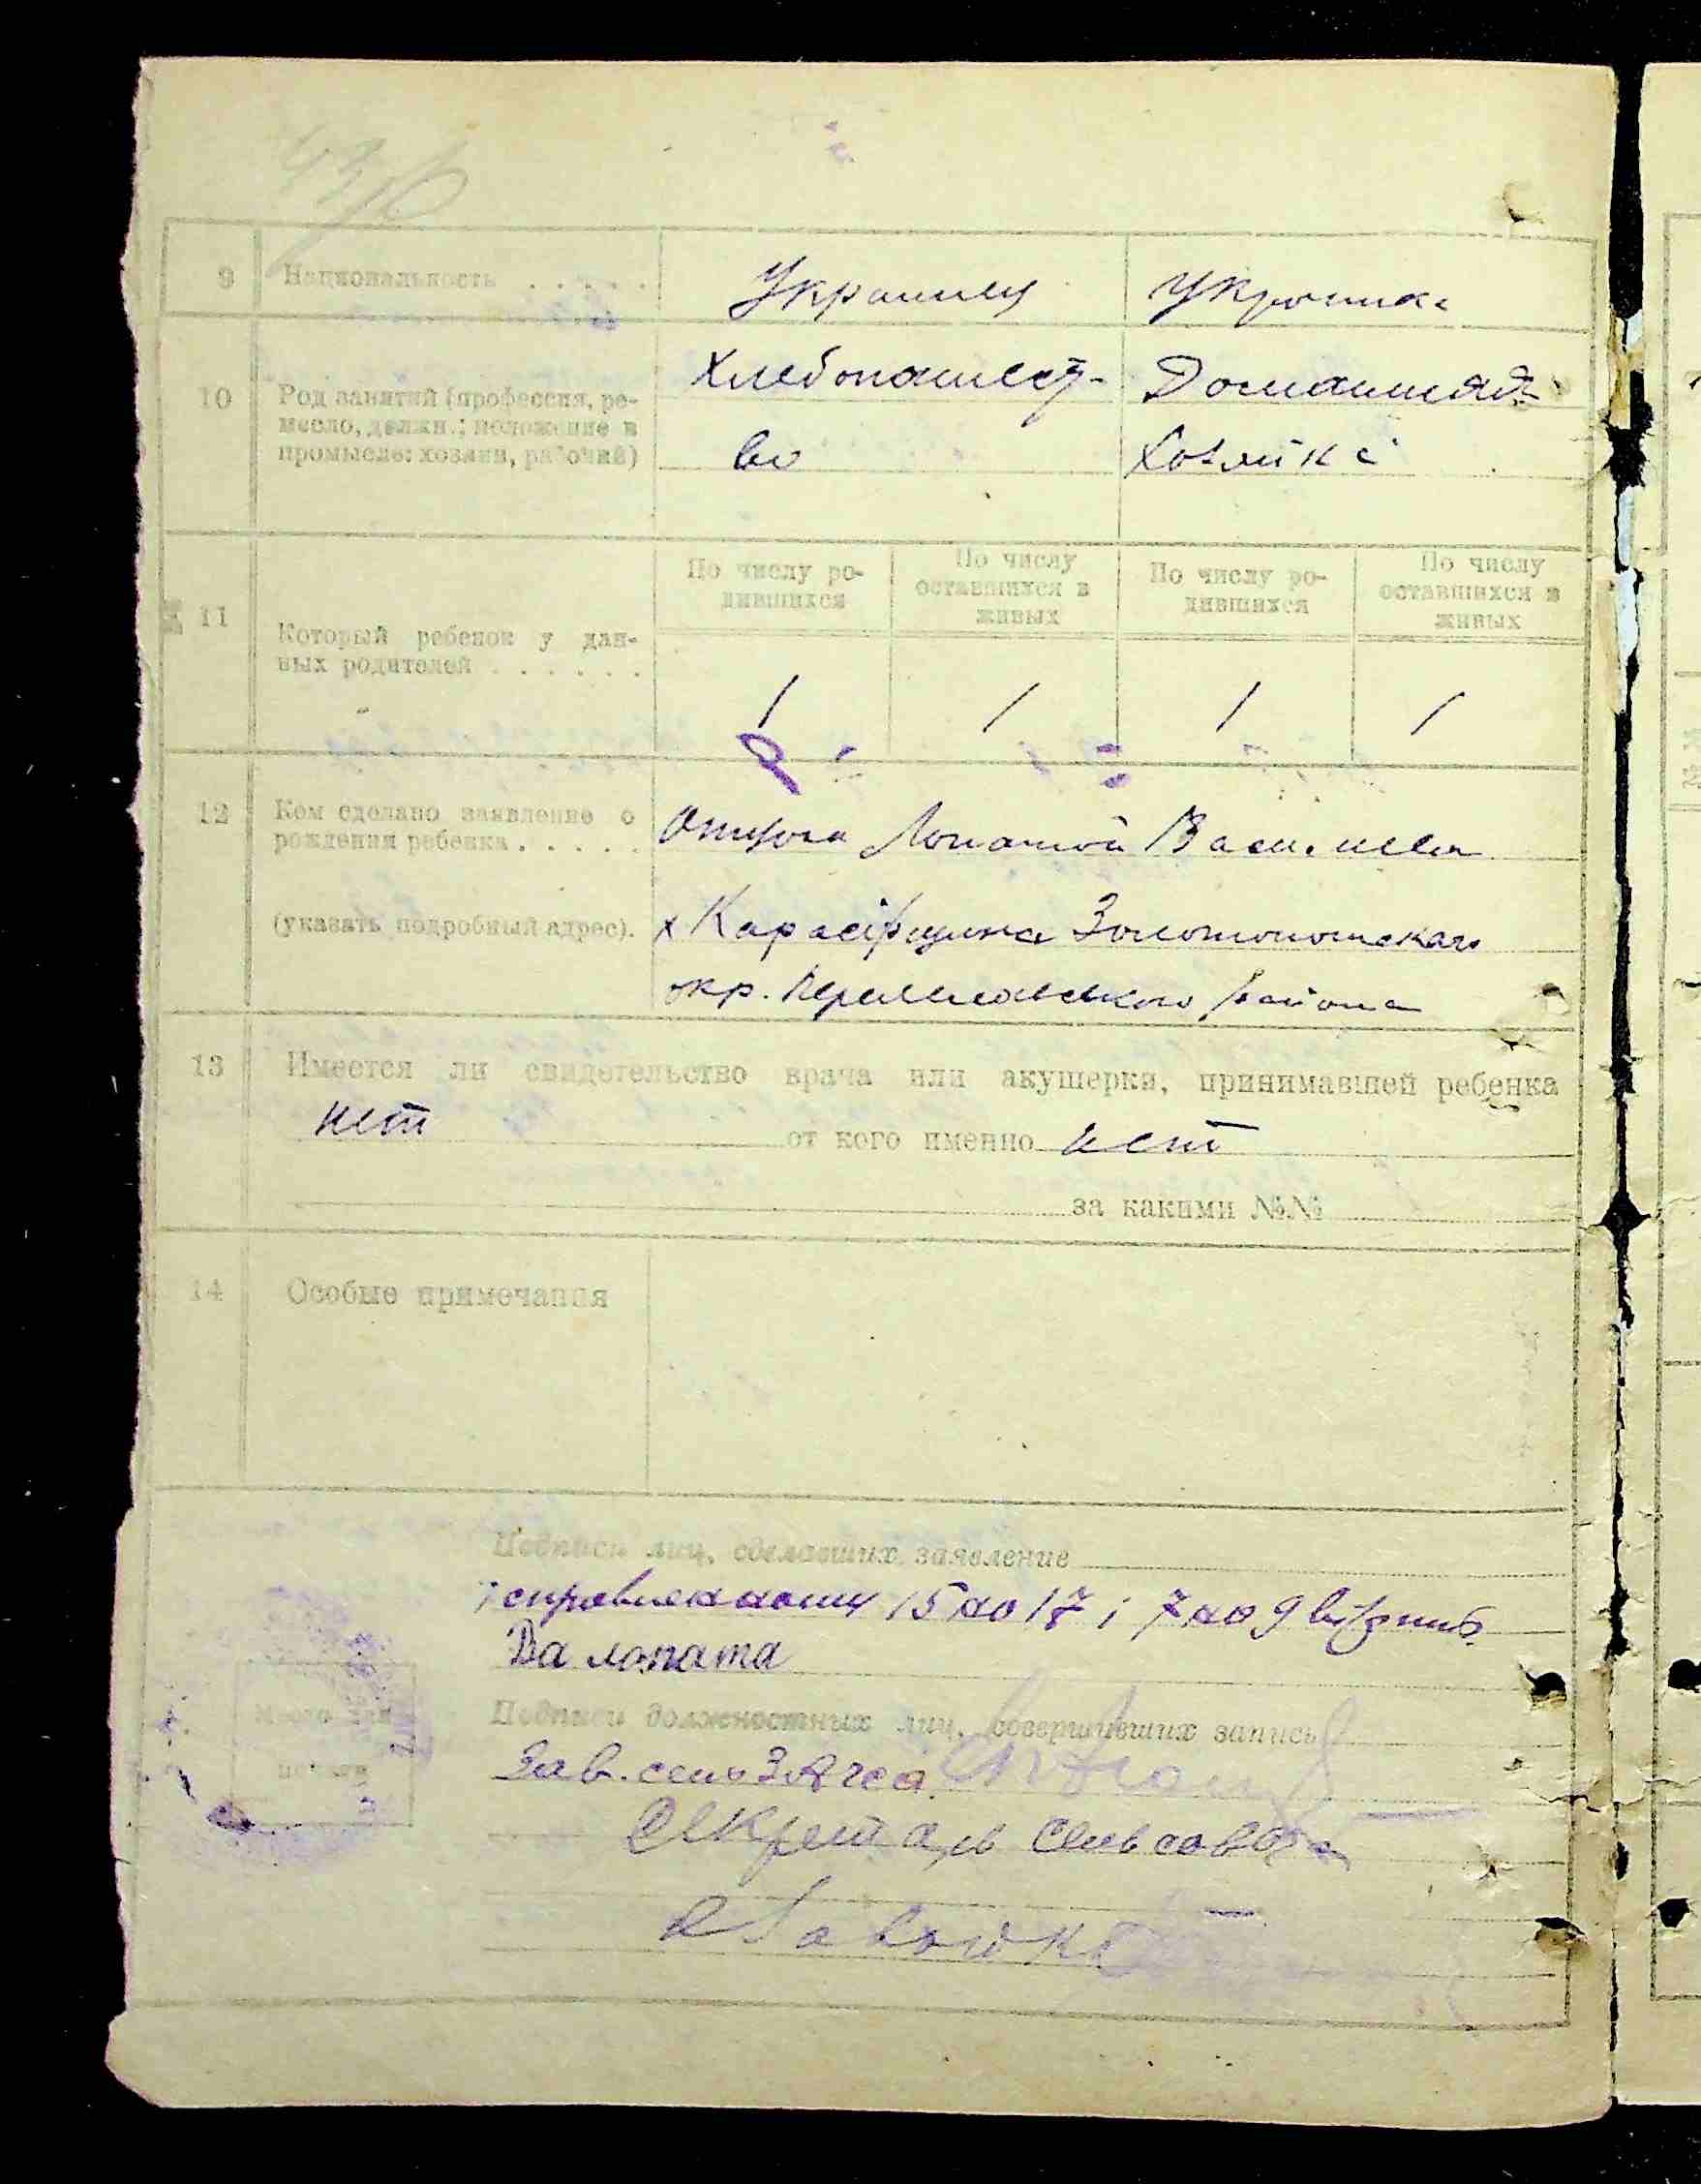 9 Национальность . . . . . Украинец Украинка
10 Род занятий (профессия, ре-
месло, должн.; положение в
промысле: хозяин, рабочий)
Хлебопашест-
во
Домашняя
Хозяйка
11 Который ребенок у дан-
ных родителей . . . . . .
По числу ро-
дившихся
По числу
оставшихся в
живых
По числу ро-
дившихся
По числу
оставшихся в
живых
1 1 1 1
12 Кем сделано заявление о
рождении ребенка . . . . .
(указать подробный адрес).
Отцом Лопатой
х Золотоношскаго
окр. района
13 Имеется ли свидетельство врача или акушерки, принимавшей ребенка
нет от кого именно нет
за какими №№
14 Особые примечания
Подписи лиц, сделавших заявление
15 на 17 і 7 на 9
Ва лопата
Место для
печати
Подписи должностных лиц, совершивших запись
Зав. сель ЗАГСа
Секретарь Сельсовета